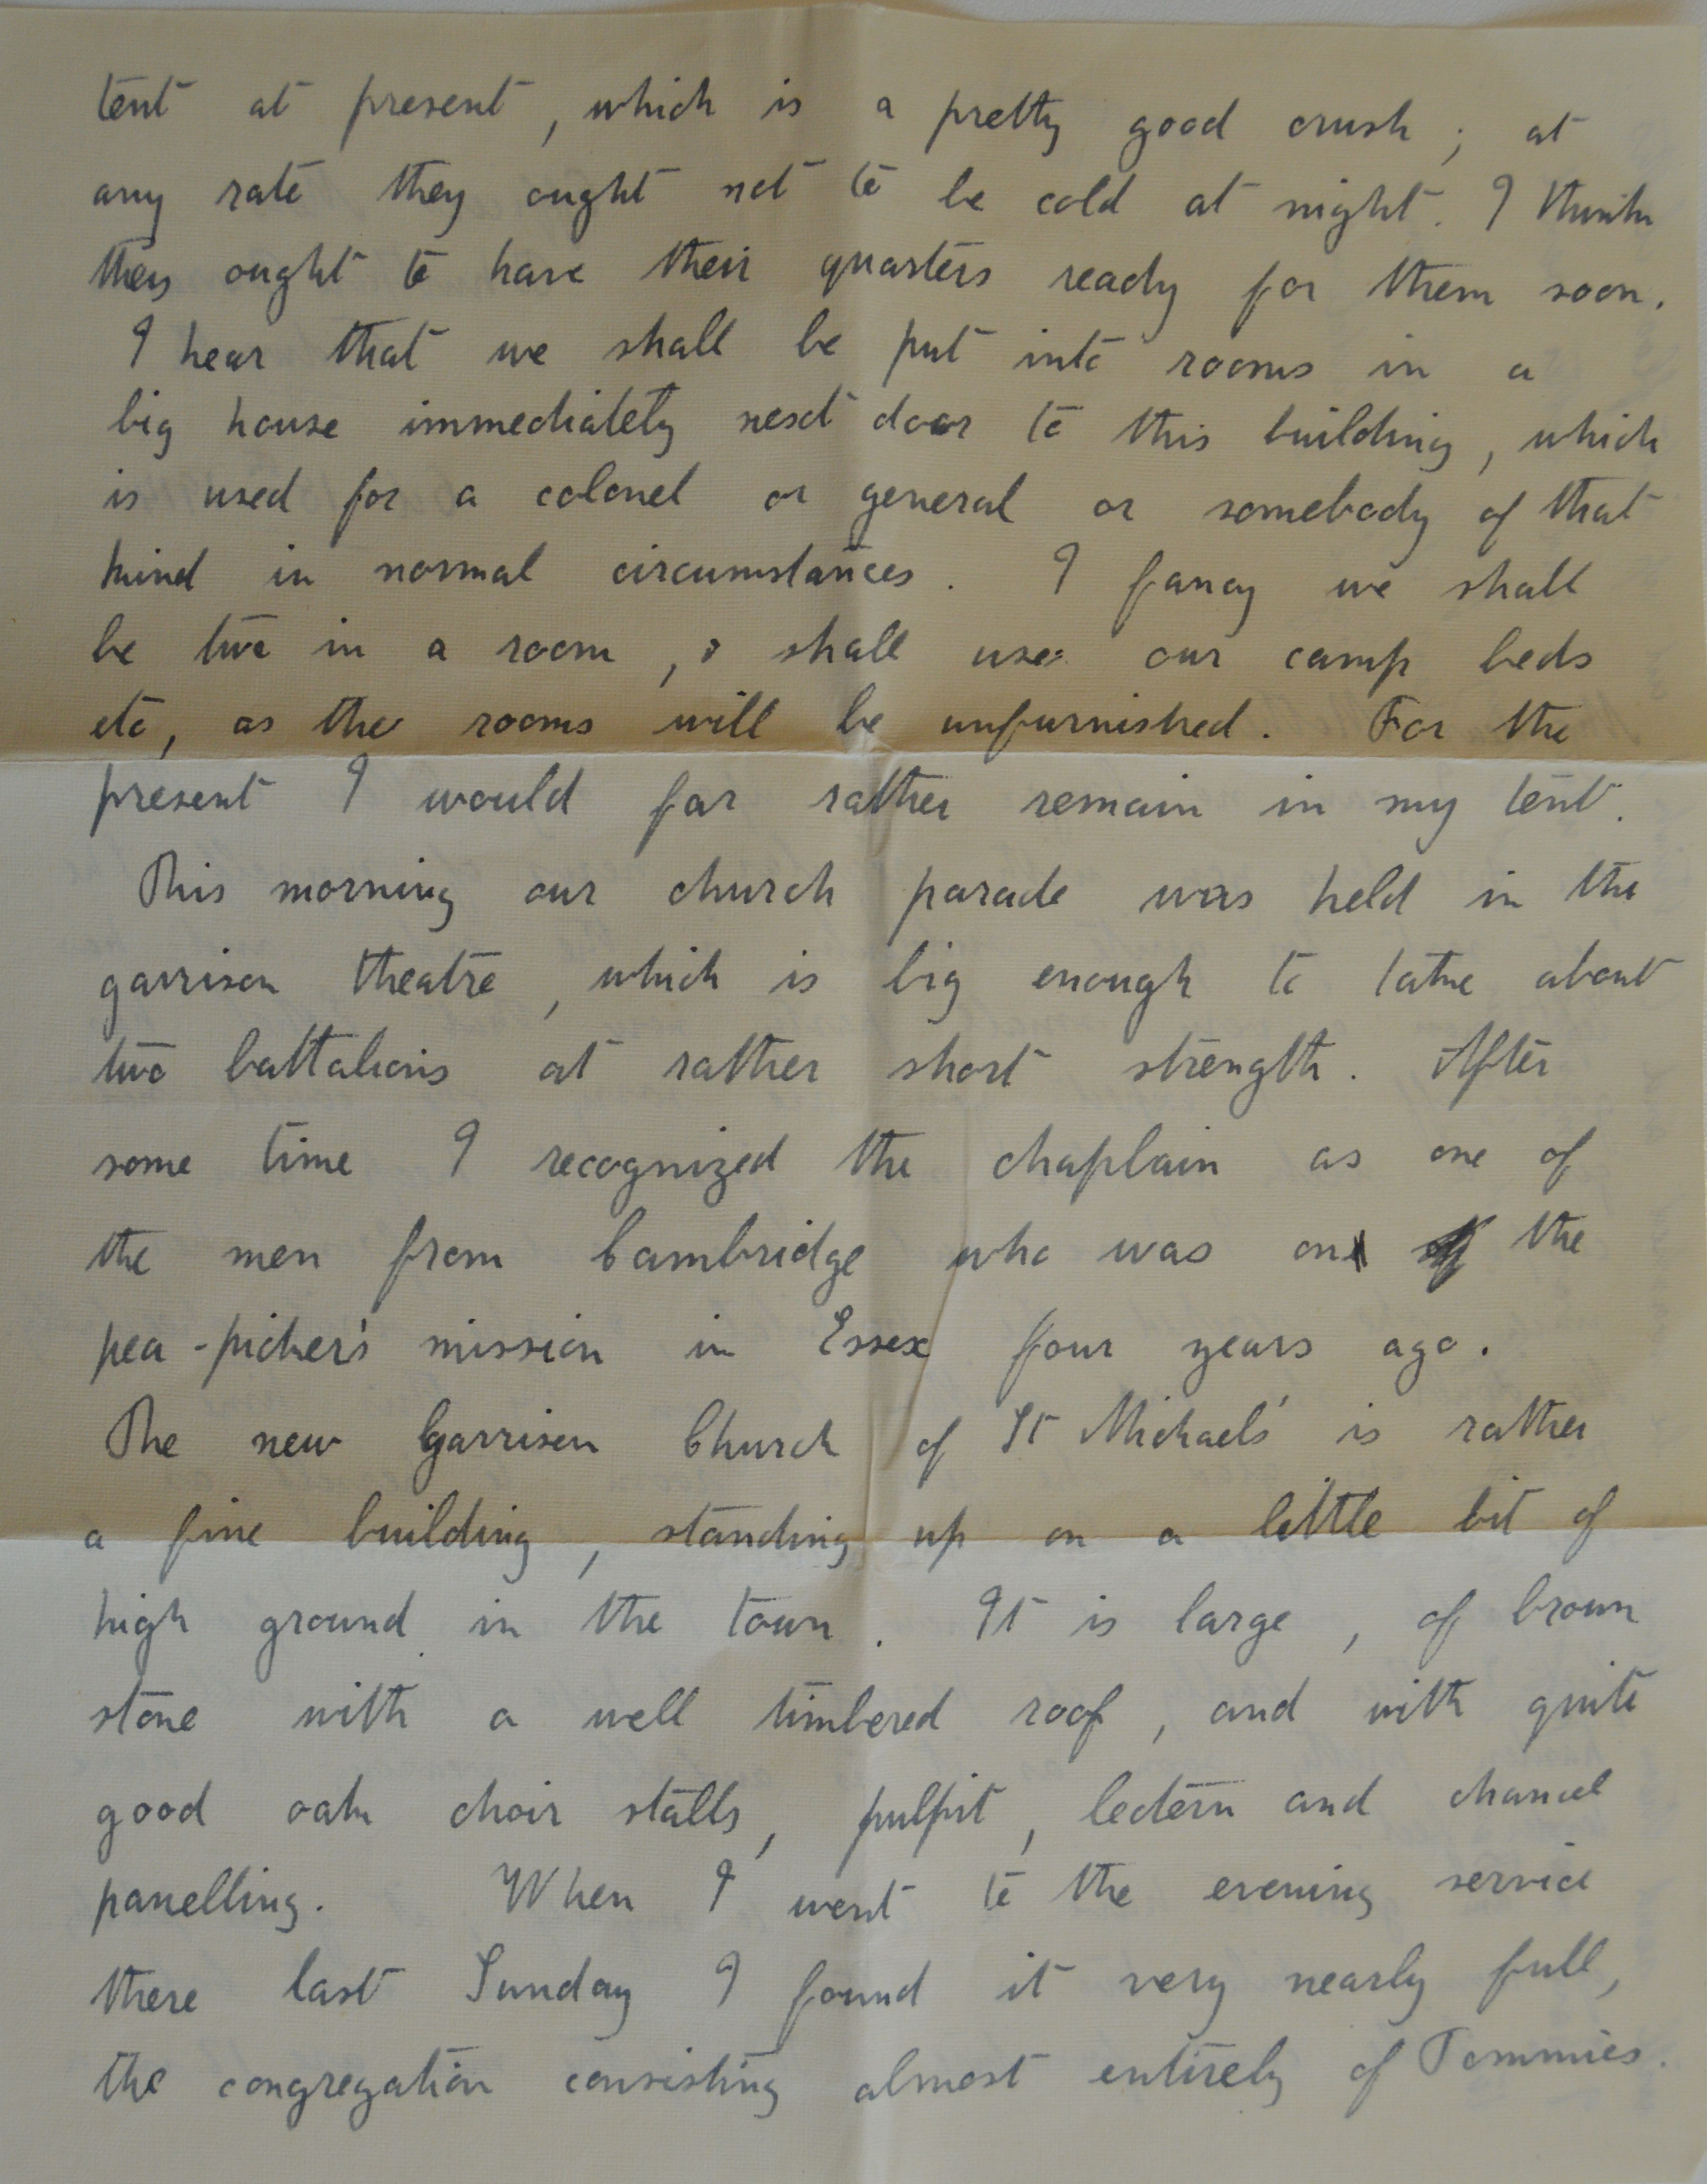 tent at present, which is a pretty good crush; at
any rate they ought not to be cold at night. I think
they ought to have their quarters ready for them soon.
I hear that we shall be put into rooms in a
big house immediately next door to this building, which
is used for a colonel or general or somebody of that
kind in normal circumstances. I fancy we shall
be two in a room, & shall use our camp beds
etc, as the rooms will be unfurnished. For the
present I would far rather remain in my tent.
This morning our church parade was held in the
garrison theatre, which is big enough to take about
two battalions at rather short strength. After
some time I recognized the chaplain as one of
the men from Cambridge who was on the
pea-picker's mission in Essex four years ago.
The new Garrison Church of St Michael's is rather
a fine building, standing up on a little bit of
high ground in the town. It is large, of brown
stone with a well timbered roof, and with quite
good oak choir stalls, pulpit, lectern and chancel
panelling. When I went to the evening service
there last Sunday I found it very nearly full,
the congregation consisting almost entirely of Tommies.